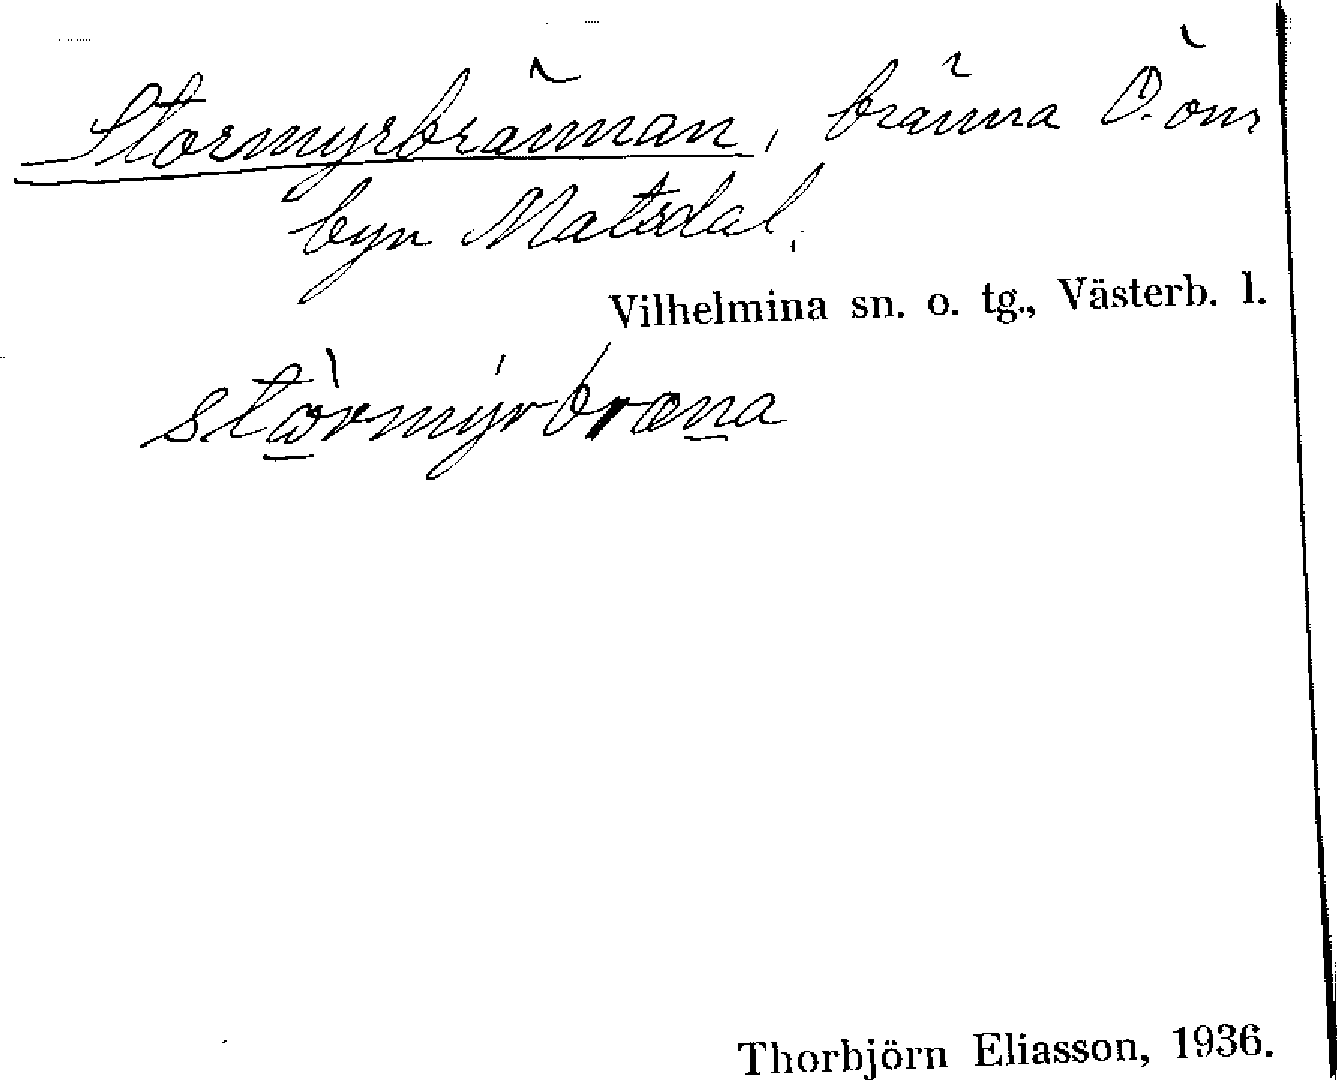 Stormyrbrännan, bränna Ö. om
byn Matsdal.
Vilhelmina sn. o. tg., Västerb. l.
stòrmýrbræna
Thorbjörn Eliasson, 1936.